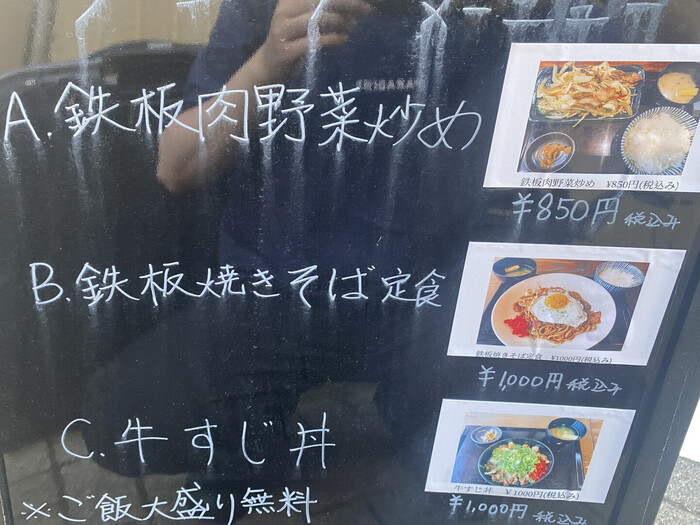 A.鉄板肉野菜炒め
鉄板肉野菜炒め ¥850円(税込み)
¥850円 税込み
B.鉄板焼きそば定食
鉄板焼きそば定食 ¥1000円(税込み)
¥1,000円 税込み
C.牛すじ丼
牛すじ丼 ¥1000円(税込み)
¥1,000円 税込み
※ご飯大盛り無料